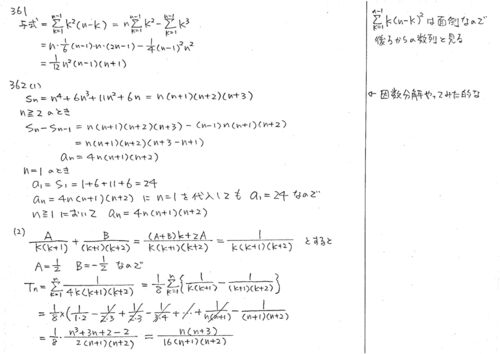 361
与式 = Σ_{k=1}^{n-1} k²(n-k) = n Σ_{k=1}^{n-1} k² - Σ_{k=1}^{n-1} k³
= n・1/6 (n-1)・n・(2n-1) - 1/4 (n-1)² n²
= 1/12 n² (n-1)(n+1)
Σ_{k=1}^{n-1} k(n-k)² は面倒なので
後ろからの数列と見る
362 (1)
Sn = n⁴ + 6n³ + 11n² + 6n = n(n+1)(n+2)(n+3)
← 因数分解やってみた的な
n≧2 のとき
Sn - Sn-1 = n(n+1)(n+2)(n+3) - (n-1)n(n+1)(n+2)
= n(n+1)(n+2)(n+3-n+1)
an = 4n(n+1)(n+2)
n=1 のとき
a1 = S1 = 1+6+11+6 = 24
an = 4n(n+1)(n+2) に n=1 を代入しても a1=24 なので
n≧1 において an = 4n(n+1)(n+2)
(2) A/k(k+1) + B/(k+1)(k+2) = (A+B)k+2A/k(k+1)(k+2) = 1/k(k+1)(k+2) とすると
A = 1/2 B = -1/2 なので
Tn = Σ_{k=1}^{n} 1/4k(k+1)(k+2) = 1/8 Σ_{k=1}^{n} {1/k(k+1) - 1/(k+1)(k+2)}
= 1/8 × (1/1・2 - 1/2・3 + 1/2・3 - 1/3・4 + ・/・ + 1/n(n+1) - 1/(n+1)(n+2)
= 1/8・n²+3n+2-2/2(n+1)(n+2) = n(n+3)/16(n+1)(n+2)